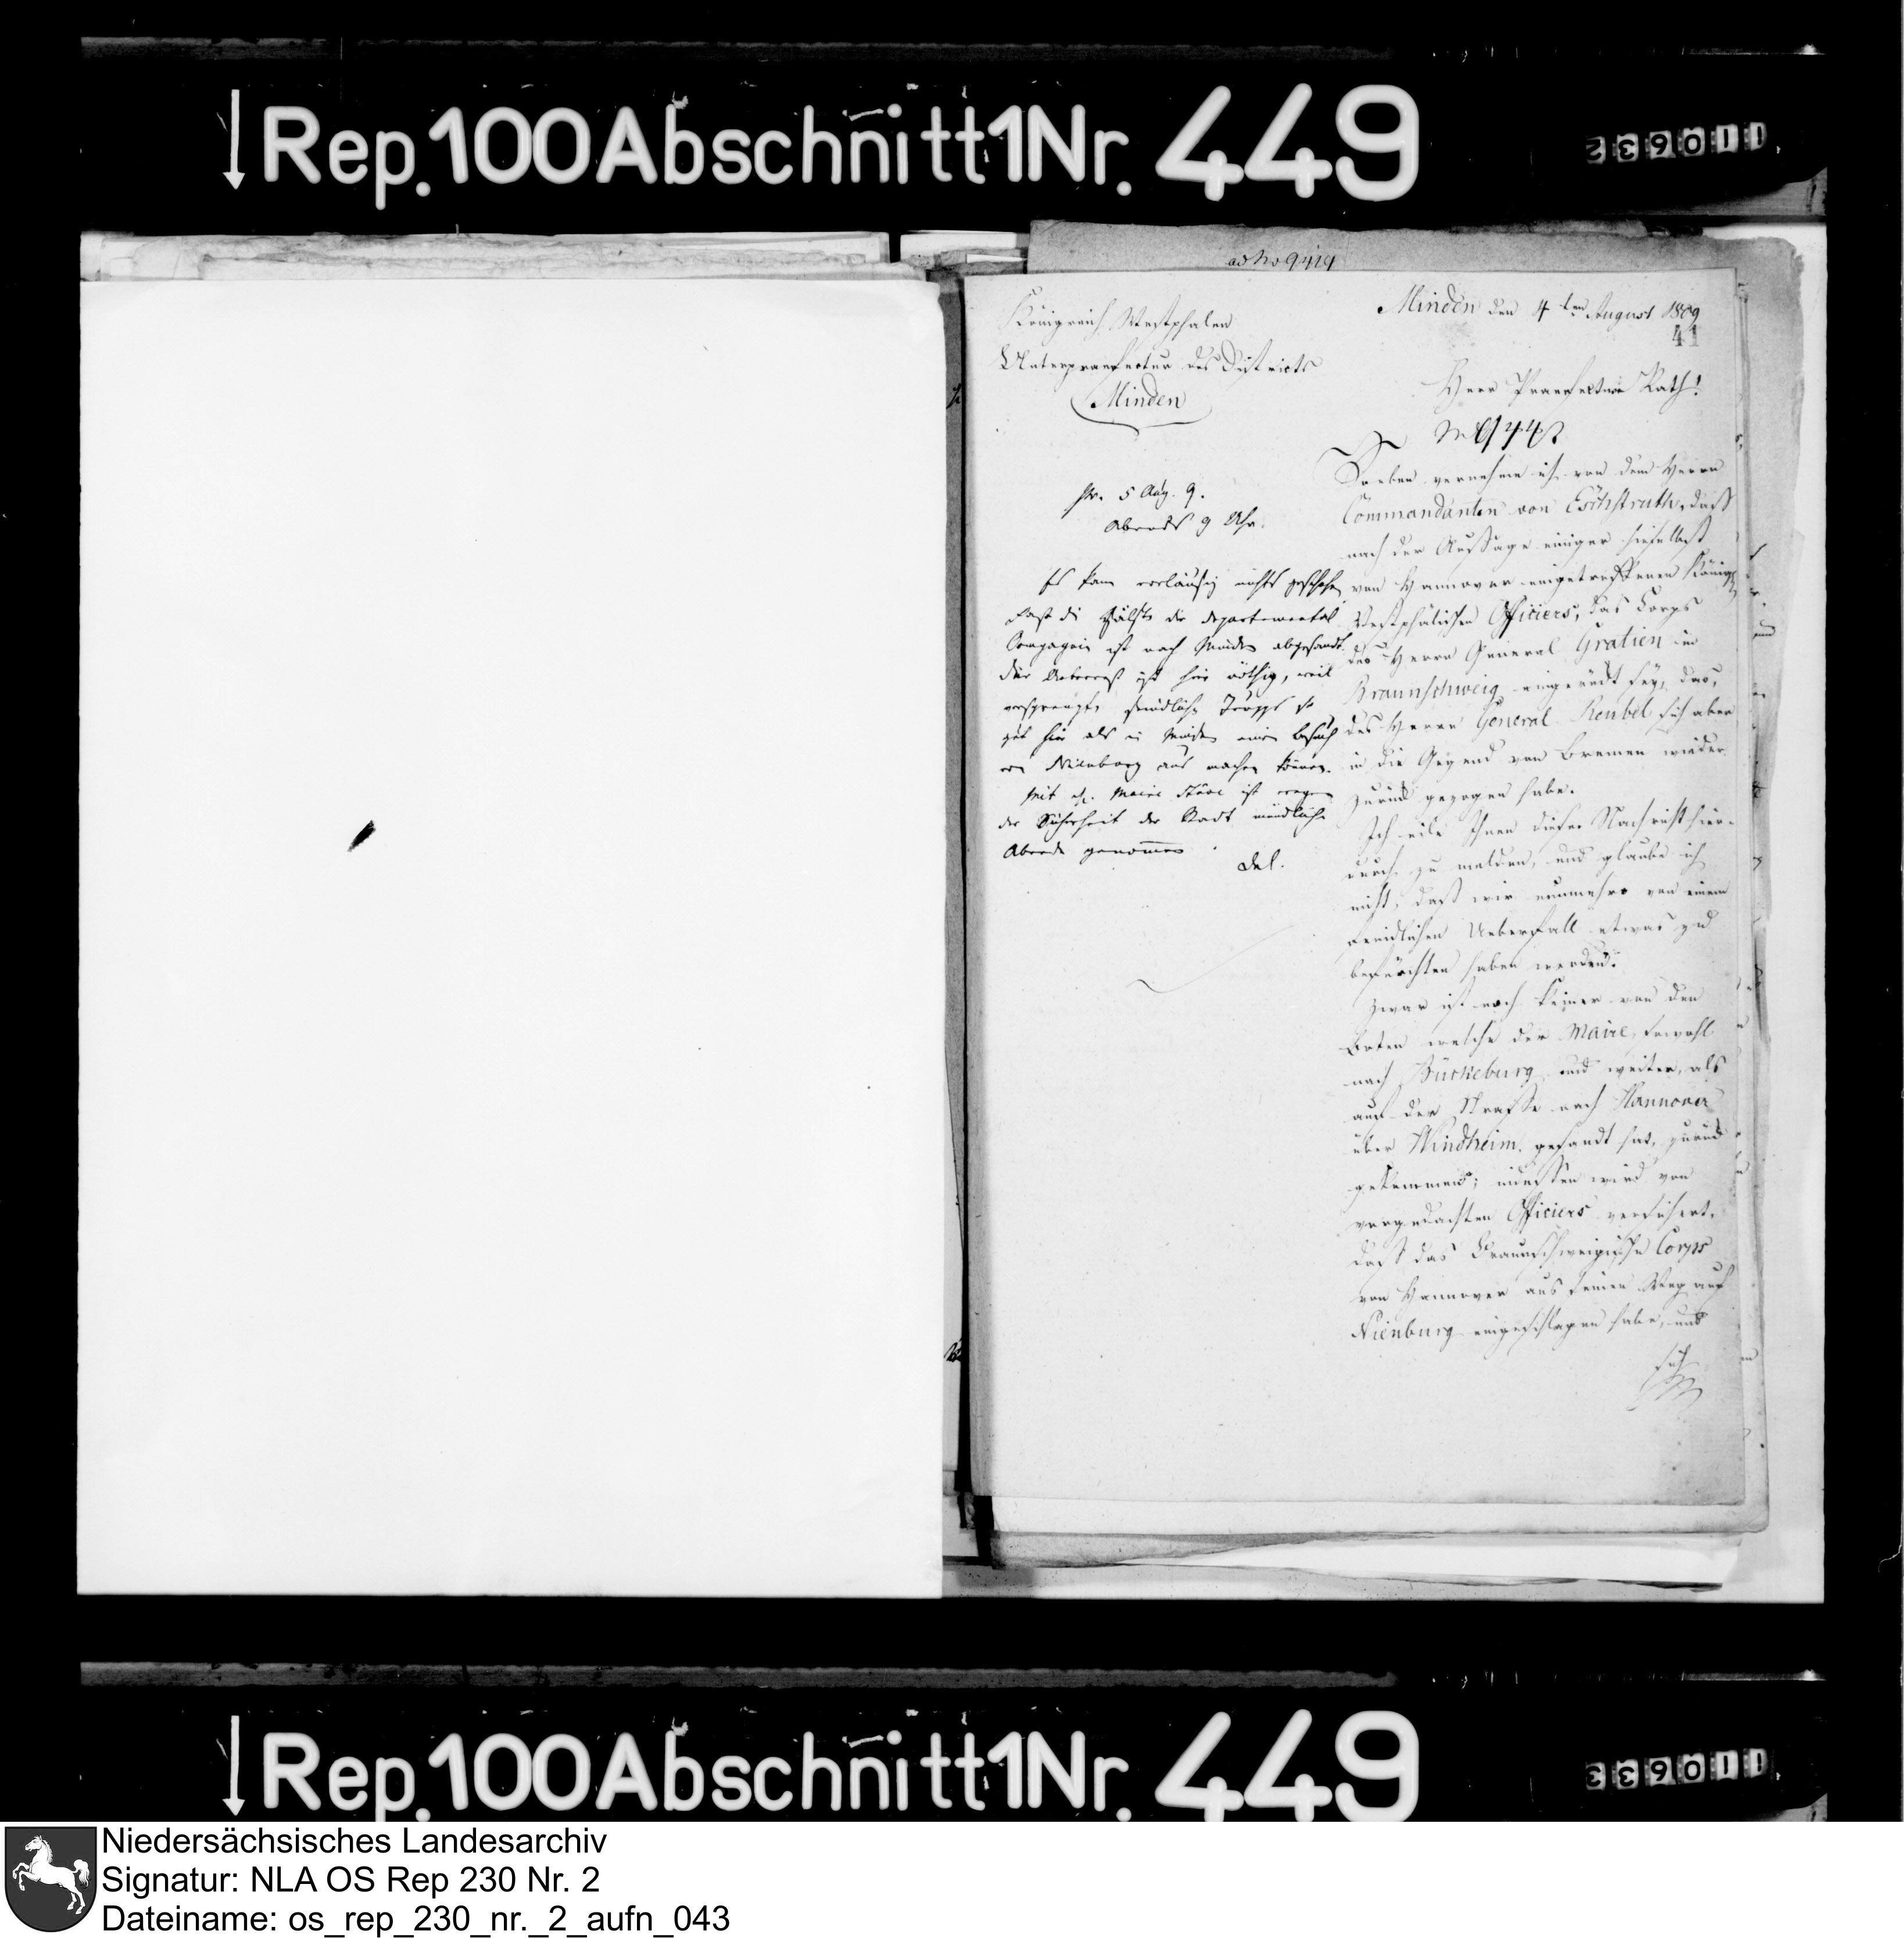 Rep. 100 Abschnitt 1 Nr. 449
110632
ad No 9414
Königreich Westphalen
Unterpraefectur des Districts
Minden
Minden den 4ten August 1809
41
Herr Praefectur Rath!
pr. 5 Aug. 9.
Abends 9 Uhr.
Es kann vorläufig nichts geschehen
Fast die Hälfte der departemental
Compagnie ist nach Minden abgesandt
der Ueberrest ist hier nöthig, weil
versprengte feindliche Trupps so
gut hier als in Minden einen Besuch
von Nienburg aus machen können.
Mit H. Maire Stüve ist wegen
der Sicherheit der Stadt mündliche
Abrede genommen.
Soeben vernehme ich von dem Herrn
Commandanten von Eschstruth, daß
nach der Aussage einiger hieselbst
von Hannover eingetroffenen Königl.
Westphälischen Officiers, das Corps
des Herrn General Gratien in
Braunschweig eingerückt sey, das,
des Herrn General Reubel sich aber
in die Gegend von Bremen wieder
zurück gezogen habe.
Ich eile Ihnen diese Nachricht hier-
durch zu melden, und glaube ich
nicht, daß wir nunmehro von einem
feindlichen Ueberfall etwas zu
befürchten haben werden.
Zwar ist noch keiner von den
Boten welche der Maire, sowohl
nach Bückeburg und weiter, als
auf der Straße nach Hannover
über Windheim, gesandt hat, zurück
gekommen; indessen wird von
vorgedachten Officiers versichert,
daß das Braunschweigische Corps
von Hannover aus seinen Weg auf
Nienburg eingeschlagen habe, und
sich
Rep. 100 Abschnitt 1 Nr. 449
110633
Niedersächsisches Landesarchiv
Signatur: NLA OS Rep 230 Nr. 2
Dateiname: os_rep_230_nr._2_aufn_043